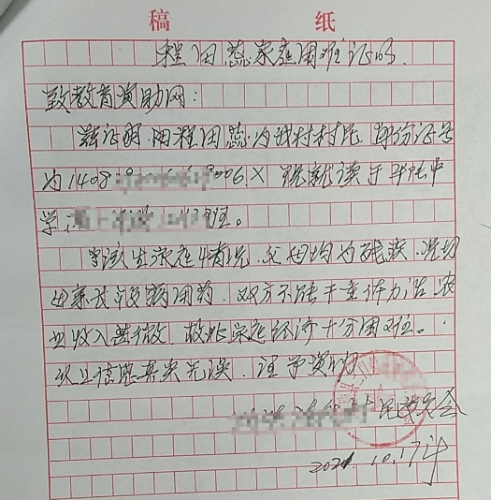 稿 纸
程田蕊家庭困难证明
致教育资助网：
兹证明 程田蕊为我村村民 身份证号
为1408 3006X 现就读于 中
学 班。
该生家庭情况，父母均为残疾，
母亲 用药，双方不能干重体力活，农
业收入微，故此家庭经济十分困难。
以上信息真实无误，请予资助
民委员会
2021.10.17